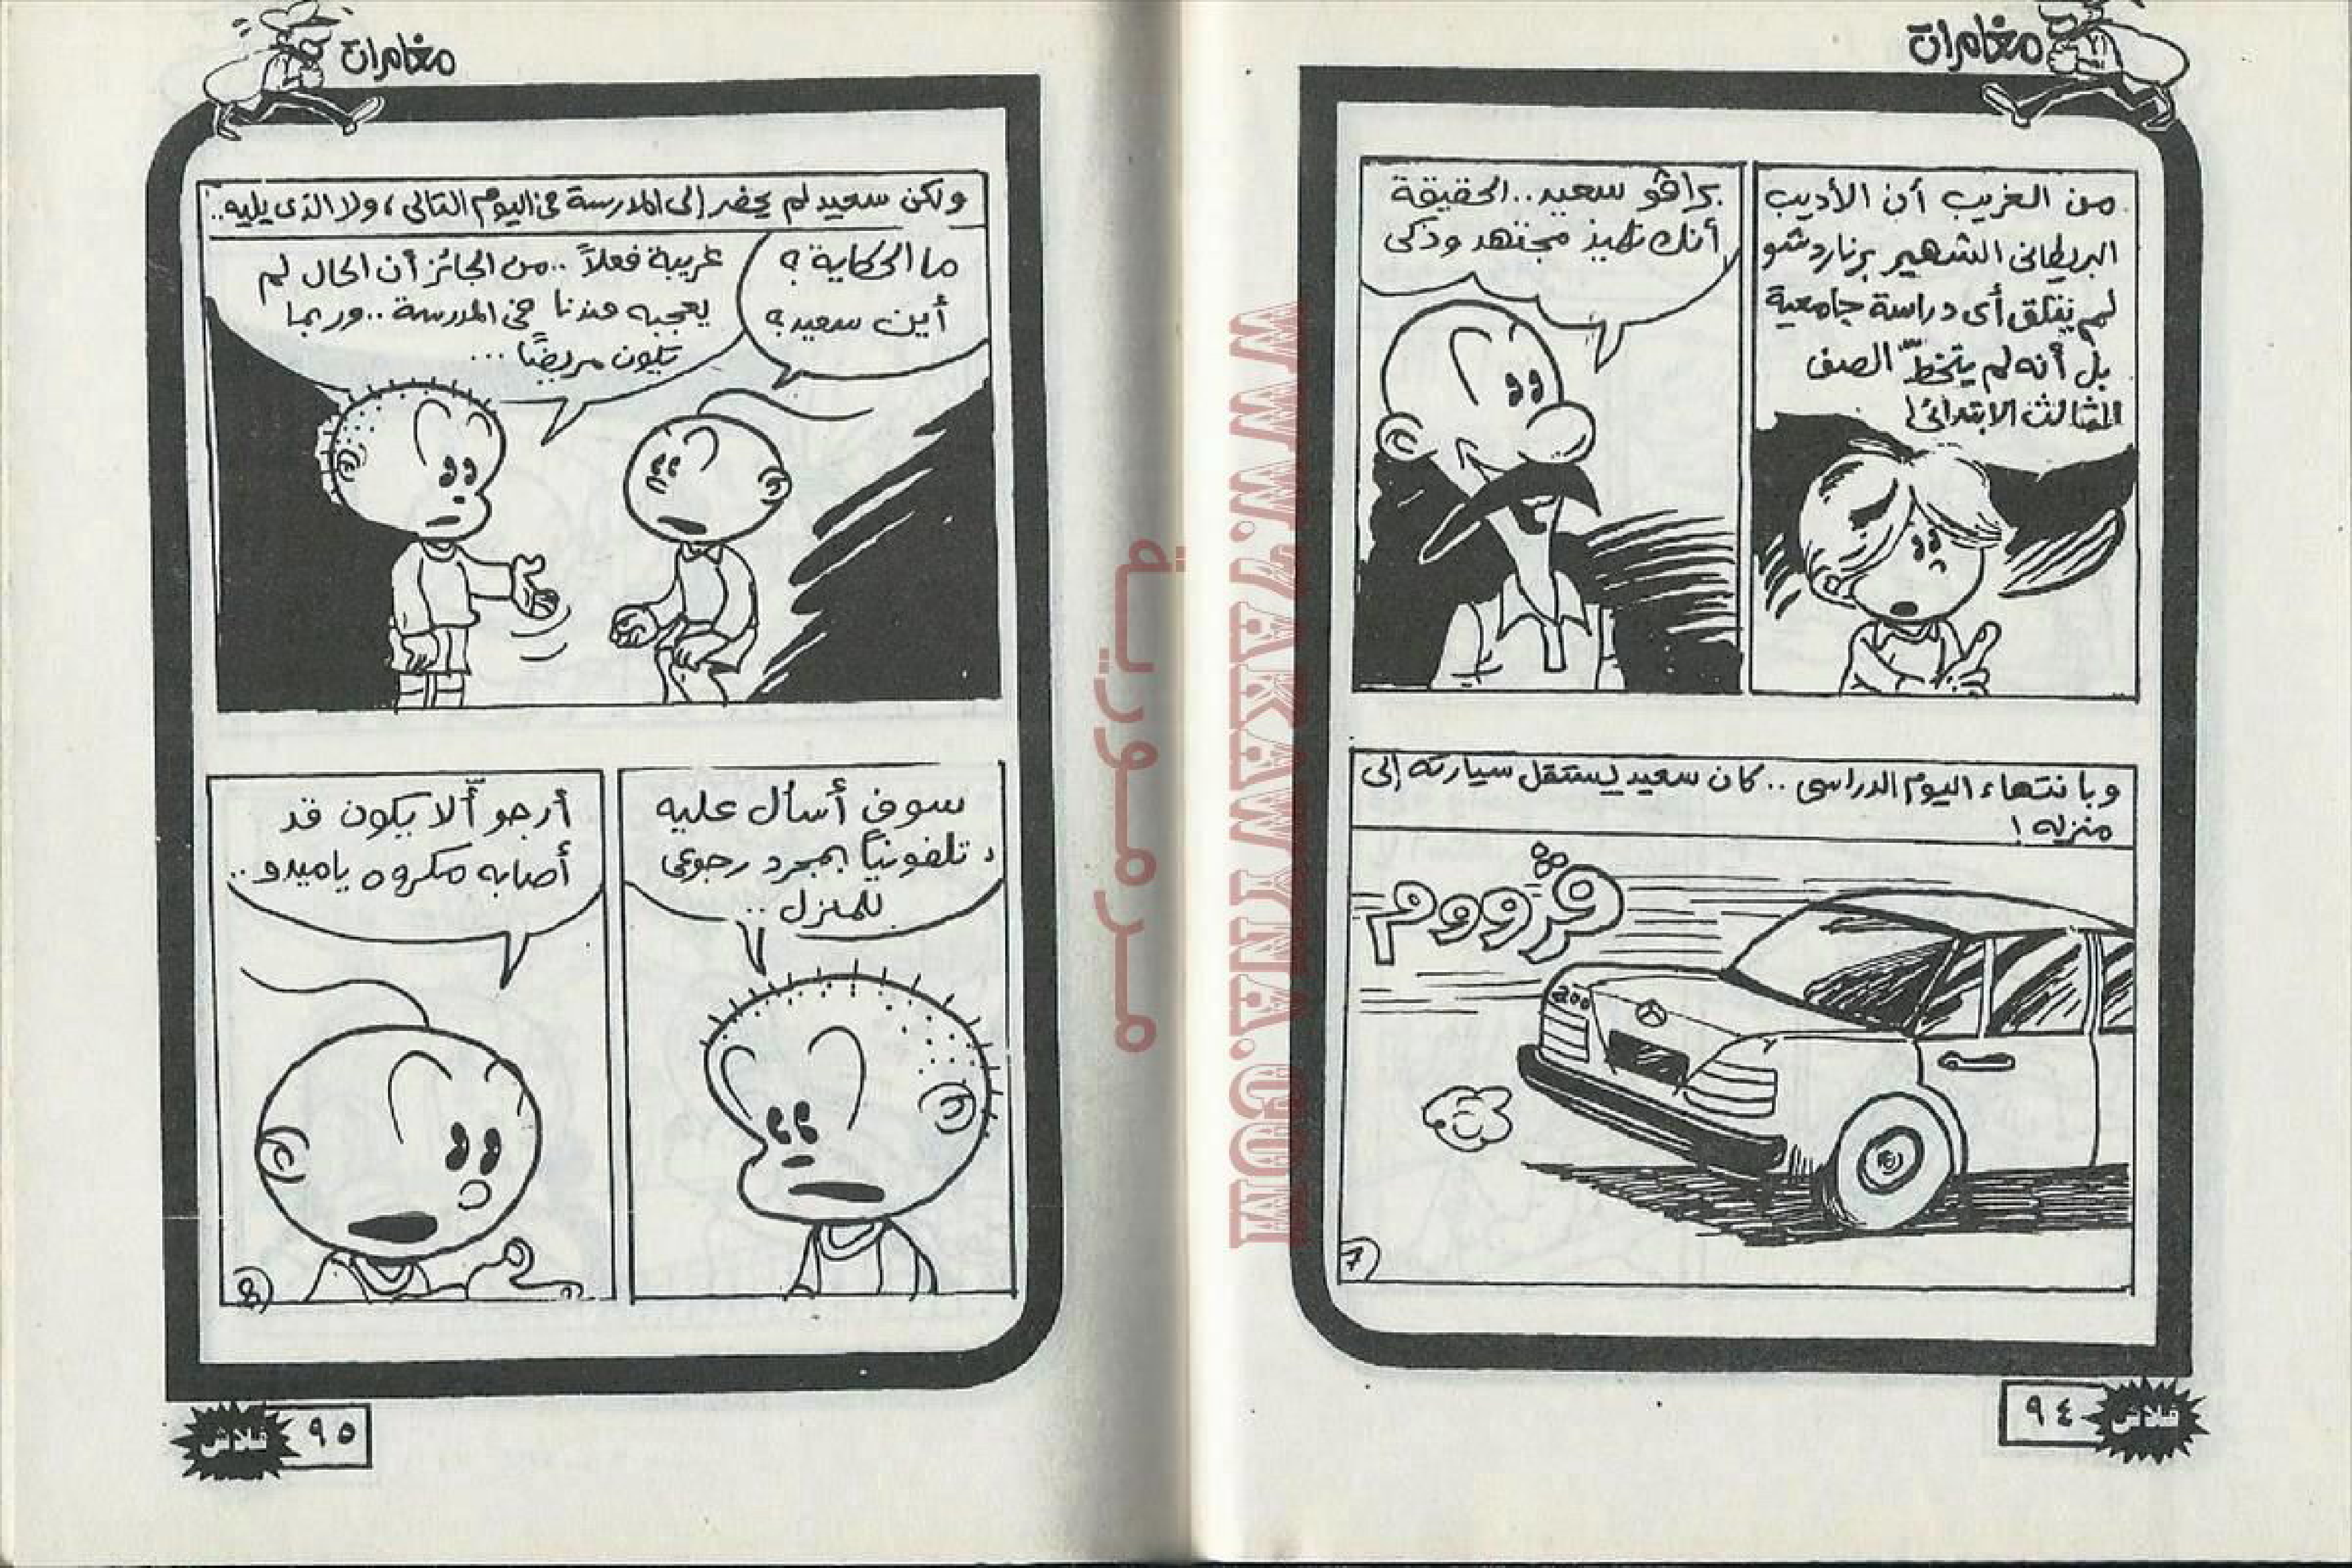 مغامرات
من الغريب أن الأديب
البريطانى الشهير برناردشو
لم يتلق أى دراسة جامعية
بل أنه لم يتخطّ الصف
الثالث الابتدائى!
براڤو سعيد.. الحقيقة
أنك تلميذ مجتهد وذكى
وبانتهاء اليوم الدراسى.. كان سعيد يستقل سيارته إلى
منزله!
ڤرووم
200
7
٩٤
فلاش
مغامرات
ولكن سعيد لم يحضر إلى المدرسة فى اليوم التالى، ولا الذى يليه..
ما الحكاية؟
أين سعيد؟
غريبة فعلاً.. من الجائز أن الحال لم
يعجبه عندنا فى المدرسة.. وربما
يكون مريضًا...
سوف أسأل عليه
تلفونيًا بمجرد رجوعى
للمنزل..
أرجو ألّا يكون قد
أصابه مكروه ياميدو..
8
٩٥
فلاش
مرمورية
WWW.YAKAWKNA.COM